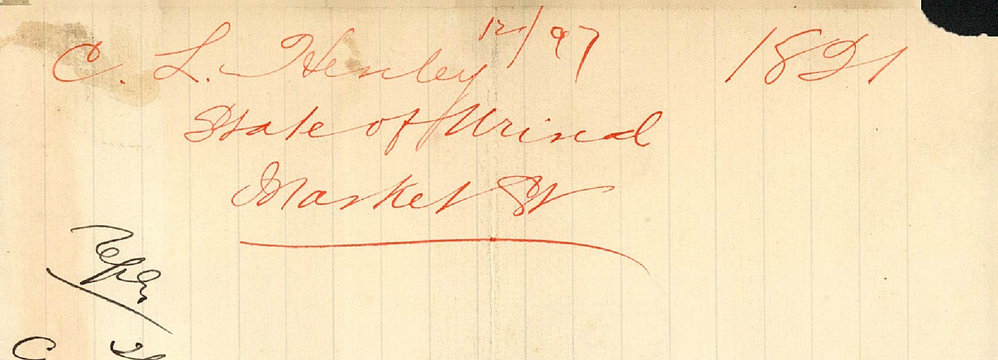 C. L. Henley 12/97 1821
State of Urinal
Market St
Reply
C